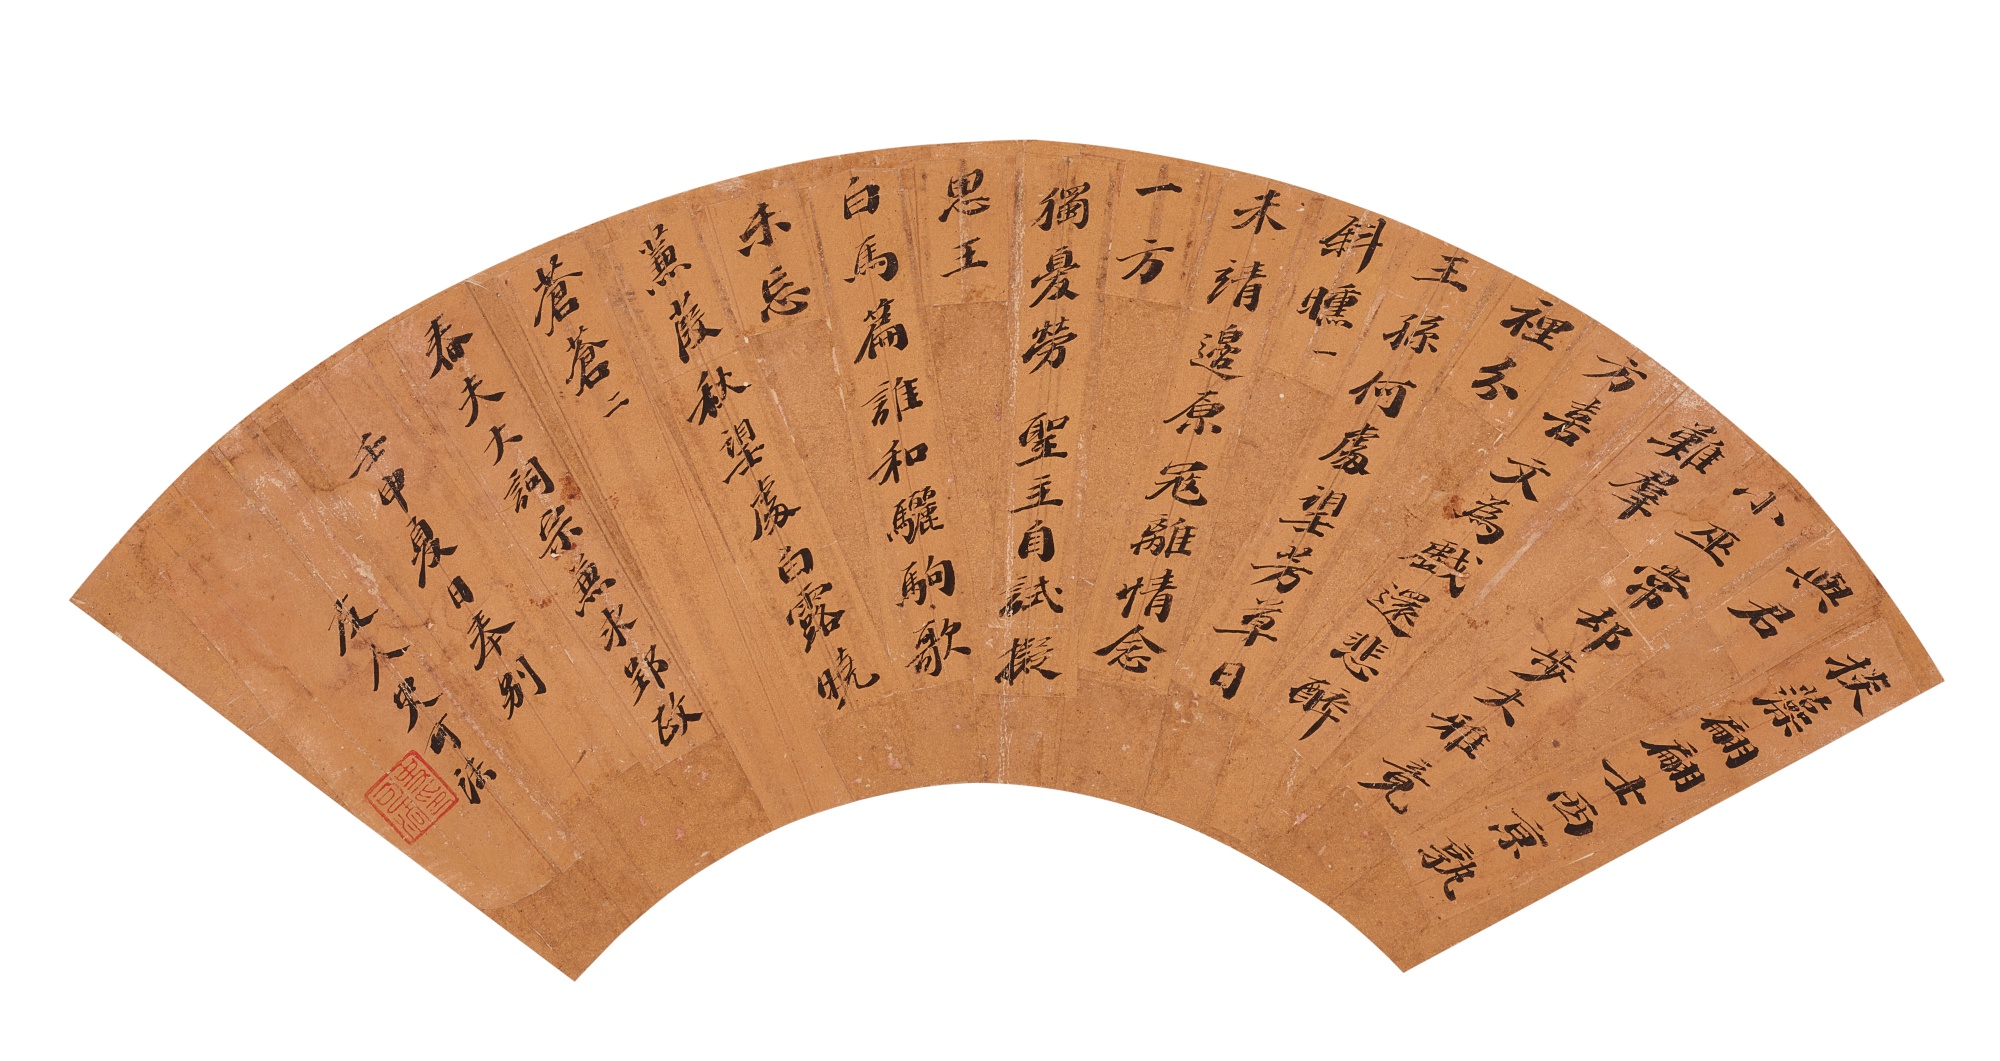 掞藻翩翩士西京孰
與君
小巫常却步大雅竟
難羣
方喜文為戲還悲醉
裡分
王孫何處望芳草日
斜曛一
未靖邊原冦離情念
一方
獨憂勞聖主自試擬
思王
白馬篇誰和驪駒歌
未忘
蒹葭秋望處白露曉
蒼蒼二
春夫大詞宗兼求郢政
壬申夏日奉別
友人史可法